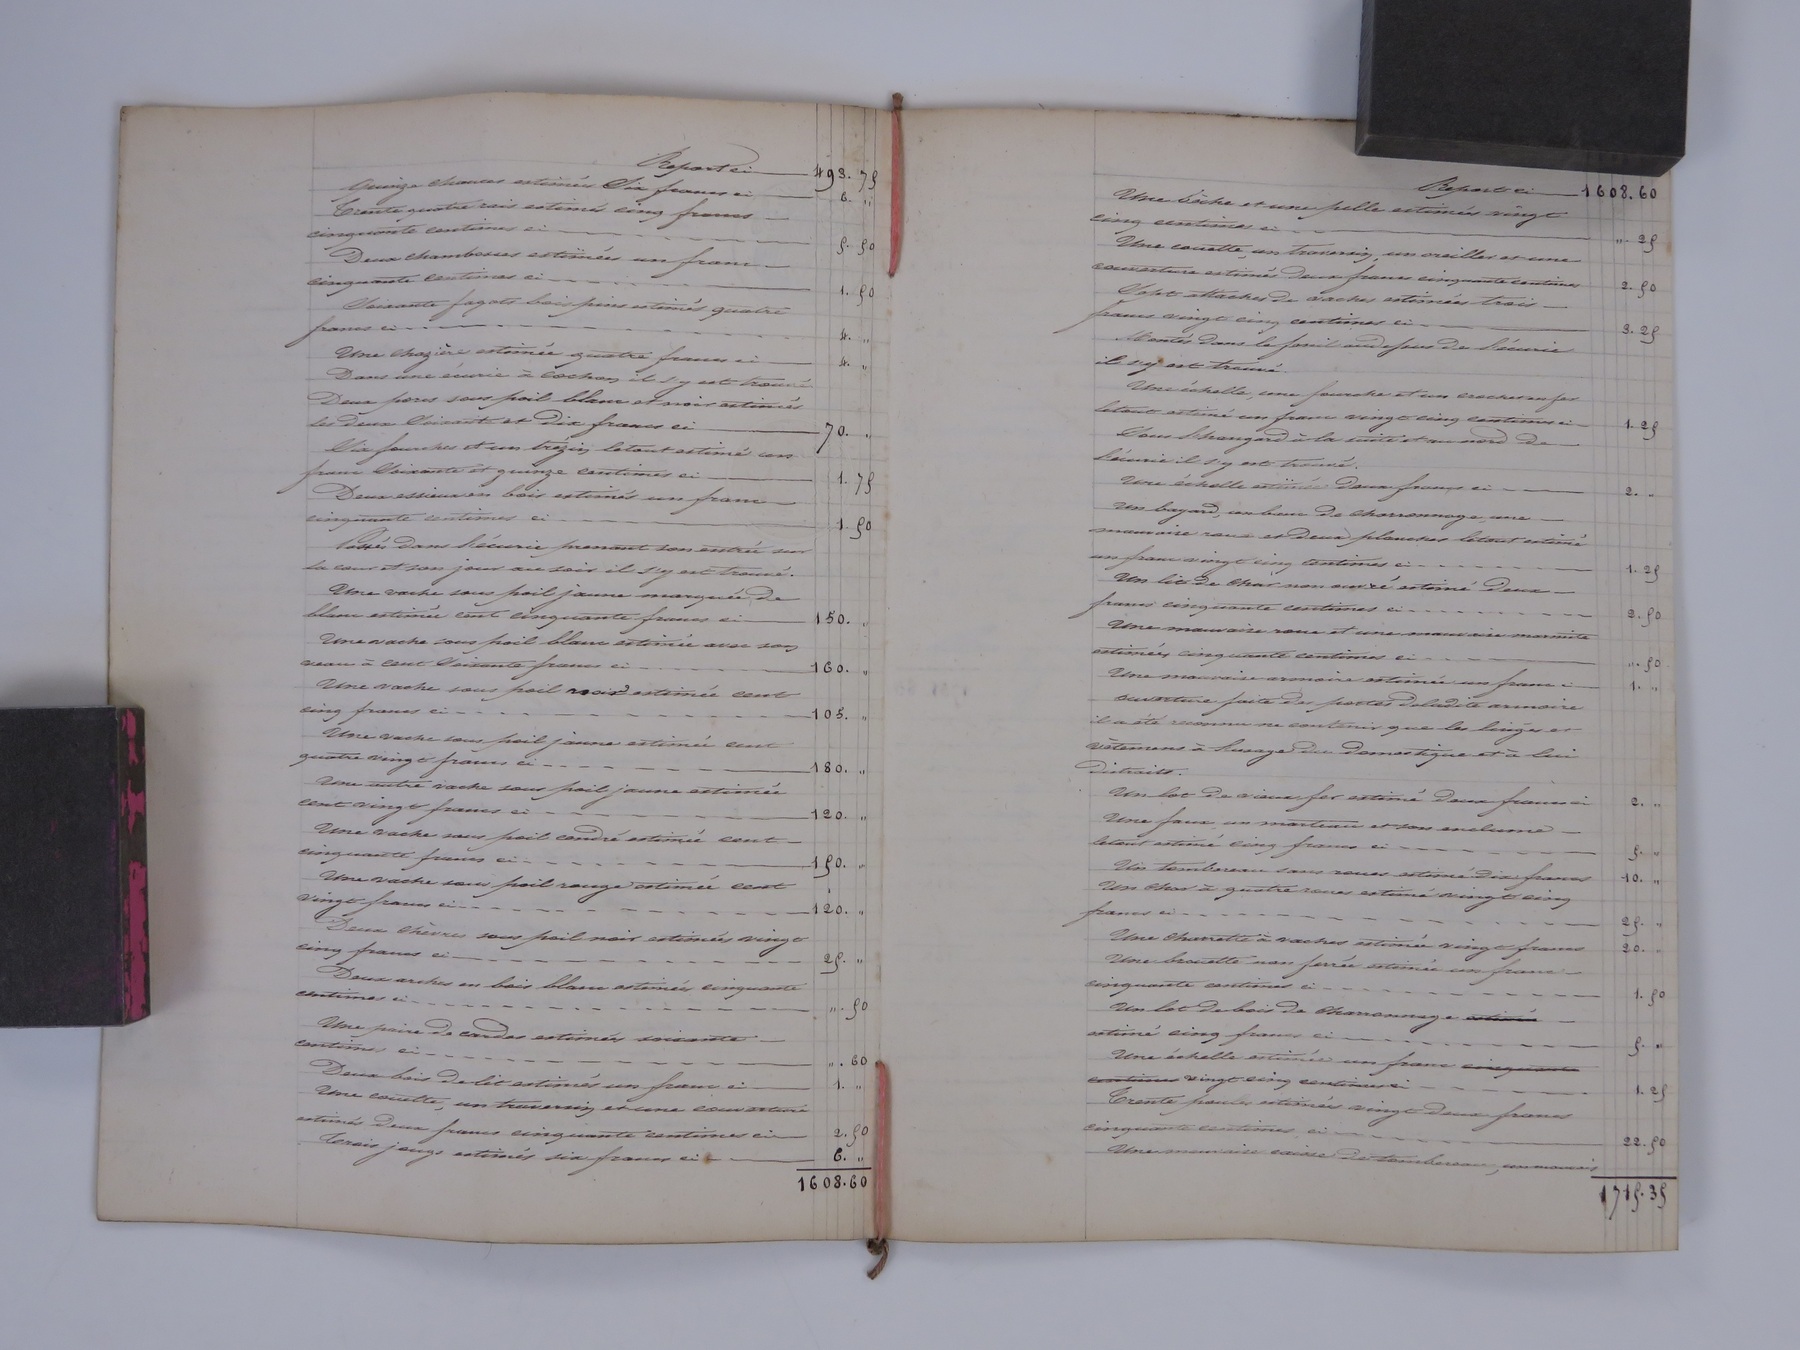 Report ci 493.75
Quinze chanves estimées Six francs ci 6. "
Trente quatre rais estimés cinq francs
cinquante centimes ci 5.50
Deux estimées un franc
cinquante centimes ci 1.50
Soixante fagots bois pins estimés quatre
francs ci 4. "
Une estimée quatre francs ci 4. "
Dans une écurie à cochons il s'y est trouvé
Deux porcs sous poil blanc et noir estimés
les deux Soixante et Dix francs ci 70. "
Six fourches et un letout estimé un
franc Soixante et quinze centimes ci 1.75
Deux essieux en bois estimés un franc
cinquante centimes ci 1.50
Passés dans l'écurie prenant son entrée sur
la cour et son jour au soir il s'y est trouvé.
Une vache sous poil jaune marquée de
blanc estimée cent cinquante francs ci 150. "
Une vache sous poil blanc estimée avec son
veau à cent Soixante francs ci 160. "
Une vache sous poil noir estimée cent
cinq francs ci 105. "
Une vache sous poil jaune estimée cent
quatre vingt francs ci 180. "
Une autre vache sous poil jaune estimée
cent vingt francs ci 120. "
Une vache sous poil cendré estimée cent
cinquante francs ci 150. "
Une vache sous poil rouge estimée cent
vingt francs ci 120. "
Deux chèvres sous poil noir estimées vingt
cinq francs ci 25. "
Deux arches en bois blanc estimées cinquante
centimes ci ". 50
Une paire de cardes estimées soixante
centimes ci ". 60
Deux bois de lit estimés un franc ci 1. "
Une couette, un traversin et une couverture
estimés deux francs cinquante centimes ci 2.50
Trois jougs estimés six francs ci 6. "
1608.60
Report ci 1608.60
Une bêche et une pelle estimées vingt
cinq centimes ci ". 25
Une couette, un traversin, un oreiller et une
couverture estimés deux francs cinquante centimes 2.50
Sept attaches de vaches estimées trois
francs vingt cinq centimes ci 3.25
Montés dans le fenil au dessus de l'écurie
il s'y est trouvé.
Une échelle, une fourche et un crochet en fer
letout estimé un franc vingt cinq centimes ci 1.25
Sous l'hangard à la suite et au nord de
l'écurie il s'y est trouvé.
Une échelle estimée Deux francs ci 2. "
Un bayard, un banc de charronnage, une
mauvaise roue et deux planches letout estimé
un franc vingt cinq centimes ci 1.25
Un lit de char non estimé Deux
francs cinquante centimes ci 2.50
Une mauvaise roue et une mauvaise marmite
estimées cinquante centimes ci ". 50
Une mauvaise armoire estimée un franc ci 1. "
Ouverture faite des portes deladite armoire
il a été reconnu ne contenir que les linges et
vêtemens à l'usage du domestique et à lui
distraits.
Un lot de vieux fer estimé deux francs ci 2. "
Une faux, un marteau et son enclume
letout estimé cinq francs ci 5. "
Un tombereau sans roues estimé dix francs 10. "
Un char à quatre roues estimé vingt cinq
francs ci 25. "
Une charrette à vaches estimée vingt francs 20. "
Une brouette non ferrée estimée un franc
cinquante centimes ci 1.50
Un lot de bois de charronnage estimé
estimé cinq francs ci 5. "
Une échelle estimée un franc cinquante
centimes vingt cinq centimes ci 1.25
Trente poules estimées vingt deux francs
cinquante centimes, ci 22.50
Une mauvaise caisse de tombereau, un mauvais
1715.35